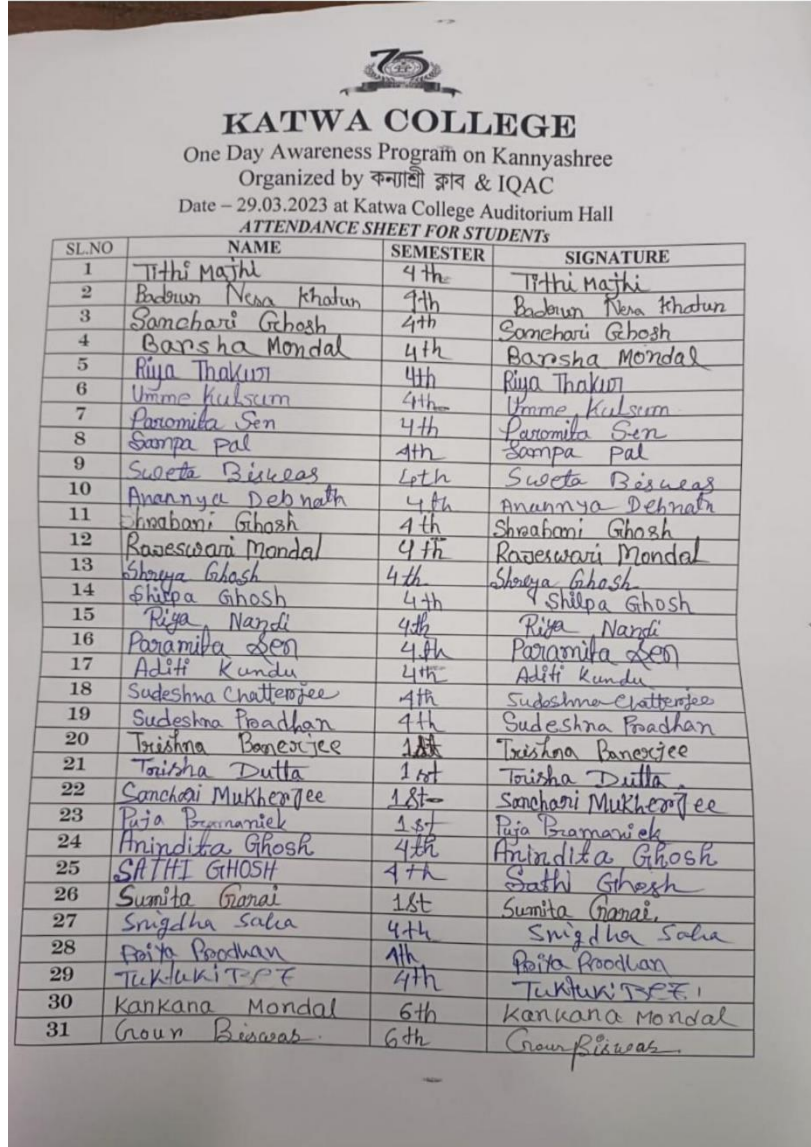 75
KATWA COLLEGE
One Day Awareness Program on Kannyashree
Organized by কন্যাশ্রী ক্লাব & IQAC
Date – 29.03.2023 at Katwa College Auditorium Hall
ATTENDANCE SHEET FOR STUDENTs
SL.NO NAME SEMESTER SIGNATURE
1 Tithi Majhi 4th Tithi Majhi
2 Badrun Nesa Khatun 4th Badrun Nesa Khatun
3 Sanchari Ghosh 4th Sanchari Ghosh
4 Barsha Mondal 4th Barsha Mondal
5 Riya Thakur 4th Riya Thakur
6 Umme Kulsum 4th Umme Kulsum
7 Paromita Sen 4th Paromita Sen
8 Sampa pal 4th Sampa pal
9 Sweta Biswas 4th Sweta Biswas
10 Anannya Debnath 4th Anannya Debnath
11 Shrabani Ghosh 4th Shrabani Ghosh
12 Rajeswari Mondal 4th Rajeswari Mondal
13 Shreya Ghosh 4th Shreya Ghosh
14 Shilpa Ghosh 4th Shilpa Ghosh
15 Riya Nandi 4th Riya Nandi
16 Paramita Sen 4th Paramita Sen
17 Aditi Kundu 4th Aditi Kundu
18 Sudeshna Chatterjee 4th Sudeshna Chatterjee
19 Sudeshna Pradhan 4th Sudeshna Pradhan
20 Trishna Banerjee 1st Trishna Banerjee
21 Trisha Dutta 1st Trisha Dutta
22 Sanchari Mukherjee 1st Sanchari Mukherjee
23 Puja Pramaniek 1st Puja Pramaniek
24 Anindita Ghosh 4th Anindita Ghosh
25 SATHI GHOSH 4th Sathi Ghosh
26 Sumita Garai 1st Sumita Garai.
27 Snigdha Saha 4th Snigdha Saha
28 Priya Pradhan 4th Priya Pradhan
29 Tuktuki 4th Tuktuki
30 Kankana Mondal 6th Kankana Mondal
31 Gour Biswas. 6th Gour Biswas.